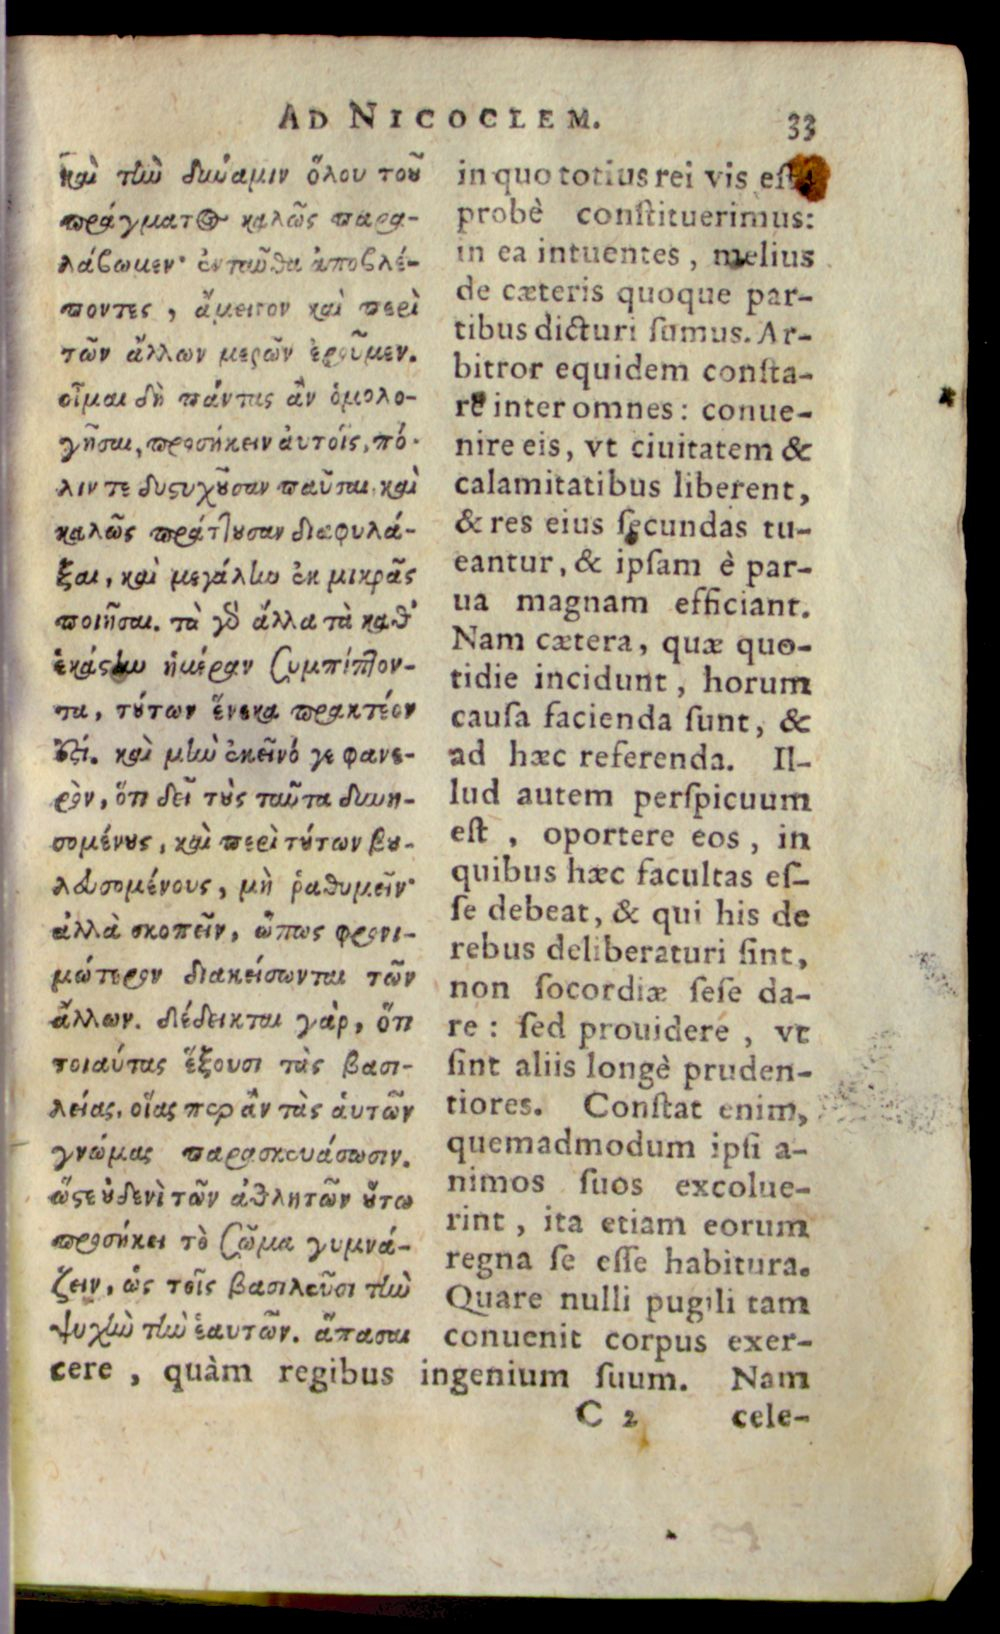 AD NICOCLEM. 33
καὶ τὴν δύναμιν ὅλου τοῦ
πράγματος καλῶς παρα-
λάβωμεν· ἐνταῦθα ἀποβλέ-
ποντες, ἄμεινον καὶ περὶ
τῶν ἄλλων μερῶν ἐροῦμεν.
οἶμαι δὴ πάντας ἂν ὁμολο-
γῆσαι, προσήκειν αὐτοῖς, πό-
λιν τε δυστυχοῦσαν παῦσαι, καὶ
καλῶς πράττουσαν διαφυλά-
ξαι, καὶ μεγάλην ἐκ μικρᾶς
ποιῆσαι. τὰ γὸ ἄλλα τὰ καθ'
ἑκάστην ἡμέραν συμπίπτον-
τα, τούτων ἕνεκα πρακτέον
ἐστί. καὶ μὴν ἐκεῖνό γε φανε-
ρὸν, ὅτι δεῖ τοὺς ταῦτα δυνη-
σομένους, καὶ περὶ τούτων βου-
λευσομένους, μὴ ῥαθυμεῖν·
ἀλλὰ σκοπεῖν, ὅπως φρονι-
μώτερον διακείσωνται τῶν
ἄλλων. δέδεικται γὰρ, ὅτι
τοιαύτας ἕξουσι τὰς βασι-
λείας, οἵας περ ἂν τὰς αὑτῶν
γνώμας παρασκευάσωσιν.
ὥστε οὐδενὶ τῶν ἀθλητῶν οὕτω
προσήκει τὸ σῶμα γυμνά-
ζειν, ὡς τοῖς βασιλεῦσι τὴν
ψυχὴν τὴν ἑαυτῶν. ἅπασαι
in quo totius rei vis est,
probè constituerimus:
in ea intuentes, melius
de cæteris quoque par-
tibus dicturi sumus. Ar-
bitror equidem consta-
re inter omnes: conue-
nire eis, vt ciuitatem &
calamitatibus liberent,
& res eius secundas tu-
eantur, & ipsam è par-
ua magnam efficiant.
Nam cætera, quæ quo-
tidie incidunt, horum
causa facienda sunt, &
ad hæc referenda. Il-
lud autem perspicuum
est, oportere eos, in
quibus hæc facultas es-
se debeat, & qui his de
rebus deliberaturi sint,
non socordiæ sese da-
re: sed prouidere, vt
sint aliis longè pruden-
tiores. Constat enim,
quemadmodum ipsi a-
nimos suos excolue-
rint, ita etiam eorum
regna se esse habitura.
Quare nulli pugili tam
conuenit corpus exer-
cere, quàm regibus ingenium suum. Nam
C 2 cele-